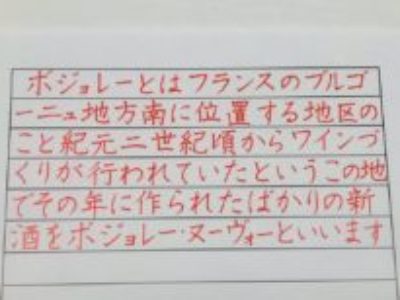 ボジョレーとはフランスのブルゴ
ーニュ地方南に位置する地区の
こと紀元二世紀頃からワインづ
くりが行われていたというこの地
でその年に作られたばかりの新
酒をボジョレー・ヌーヴォーといいます